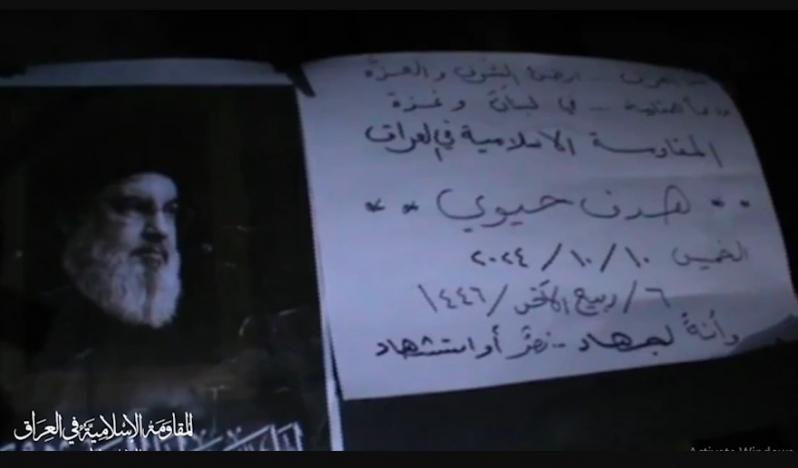 أرض الشرف والعزة
في لبنان وغزة
المقاومة الاسلامية في العراق
** هدف حيوي **
الخميس ١٠/١٠/٢٠٢٤
٦/ربيع الآخر/١٤٤٦
وأنهُ لجهاد .. نصرٌ أو استشهاد
المقاومة الإسلامية في العراق
Activate Windows